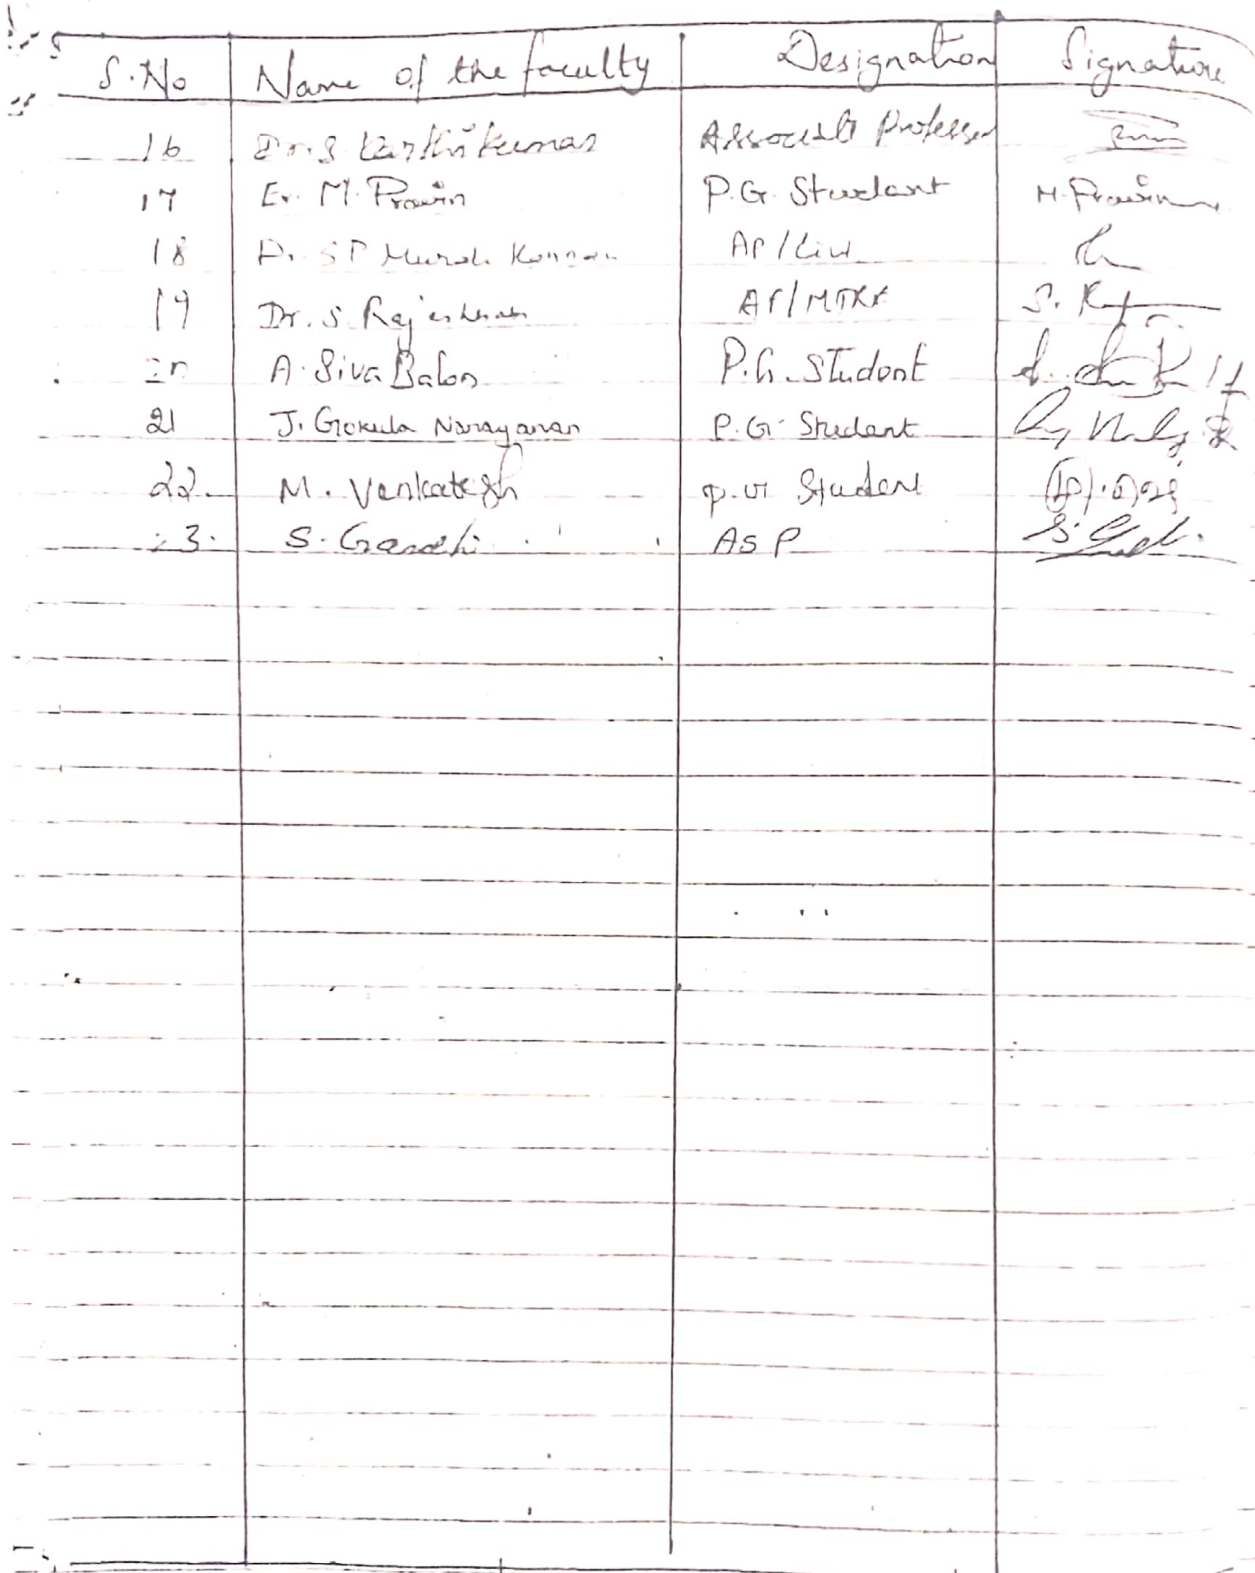 S.No Name of the faculty Designation Signature
16 Dr. S Karthikumar Associate Professor
17 Er. M. Pravin P.G. Student M. Pravin
18 Dr. SP Murali Kannan AP / Civil
19 Dr. S. Raj AP/MTRE S.
20 A. Siva Balan P.G. Student
21 J. Gokula Narayanan P.G. Student
22. M. Venkatesh P.G Student
23. S. Gandhi ASP